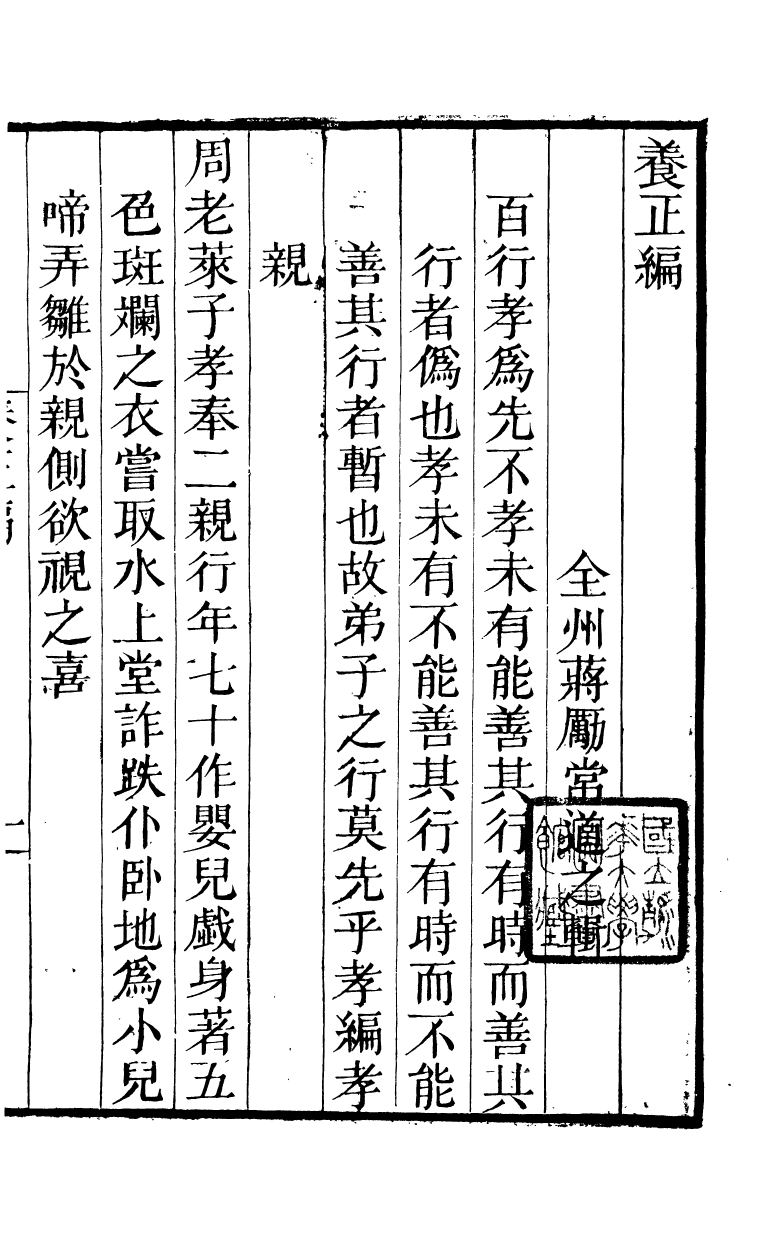 養正編
全州蔣勵常道之輯
百行孝爲先不孝未有能善其行有時而善其
行者僞也孝未有不能善其行有時而不能
善其行者暫也故弟子之行莫先乎孝編孝
親
周老萊子孝奉二親行年七十作嬰兒戲身著五
色斑斕之衣嘗取水上堂詐跌仆卧地爲小兒
啼弄雛於親側欲視之喜